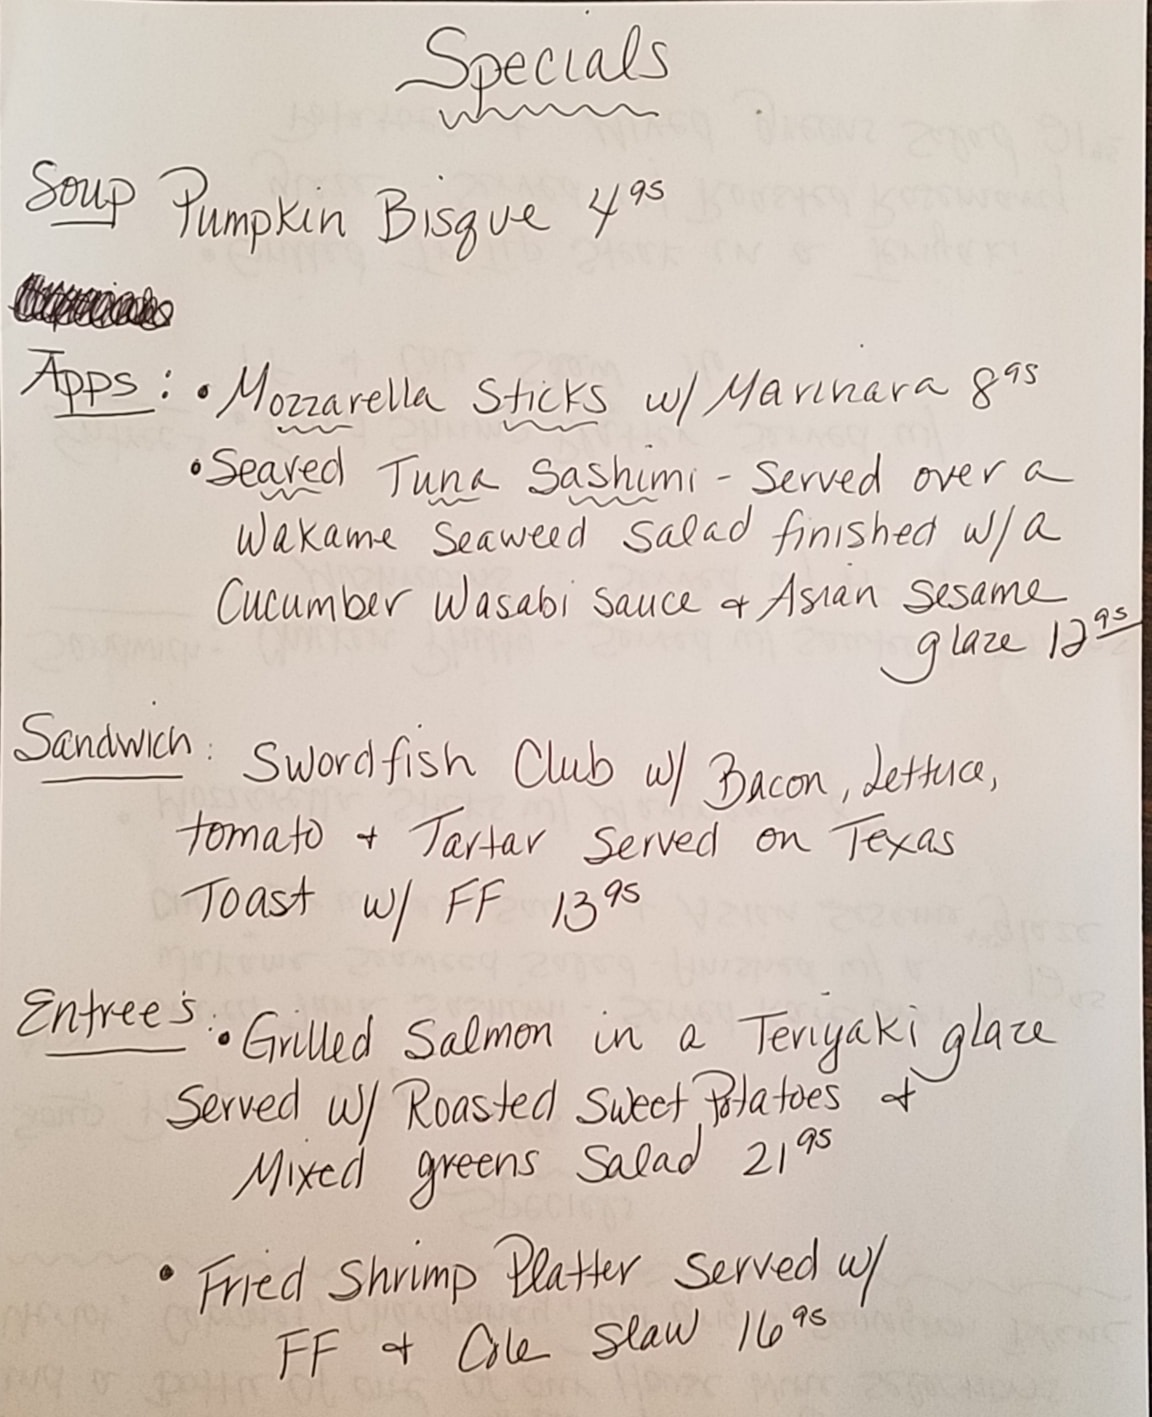 Specials
Soup Pumpkin Bisque 4 95
Apps: • Mozzarella Sticks w/ Marinara 8 95
• Seared Tuna Sashimi - Served over a
Wakame Seaweed Salad finished w/a
Cucumber Wasabi Sauce & Asian Sesame
glaze 12 95
Sandwich: Swordfish Club w/ Bacon, Lettuce,
tomato & Tartar Served on Texas
Toast w/ FF 13 95
Entree's: • Grilled Salmon in a Teriyaki glaze
Served w/ Roasted Sweet Potatoes &
Mixed greens Salad 21 95
• Fried Shrimp Platter Served w/
FF & Cole Slaw 16 95